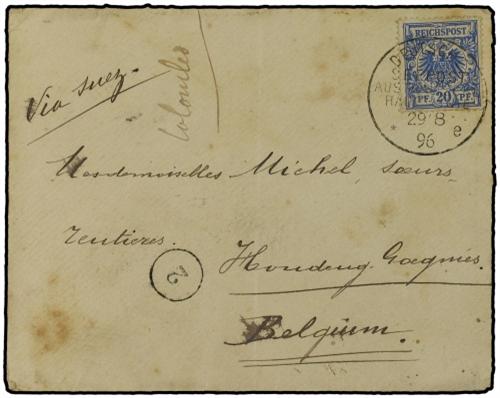 Via Suez.
Colombo
REICHSPOST
PF. 20 PF.
29/8
96 e
Mesdemoiselles Michel, sœurs,
rentières.
2
Houdeng. Gœgnies.
Belgium.